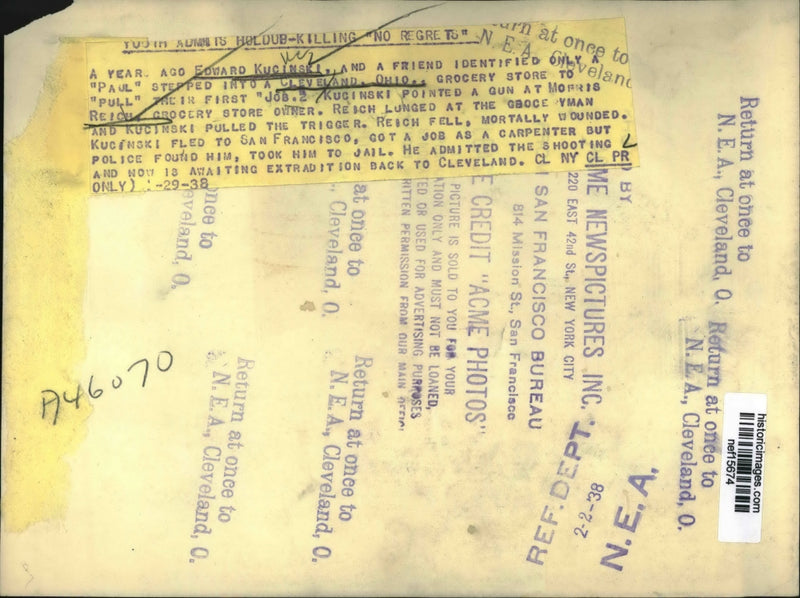 YOUTH ADMITS HOLDUB-KILLING "NO REGRETS"
A YEAR AGO EDWARD KUCINSKI, AND A FRIEND IDENTIFIED ONLY A
"PAUL" STEPPED INTO A CLEVELAND, OHIO., GROCERY STORE TO
"PULL" THEIR FIRST "JOB.2 KUCINSKI POINTED A GUN AT MORRIS
REICH, GROCERY STORE OWNER. REICH LUNGED AT THE YMAN
AND KUCINSKI PULLED THE TRIGGER. REICH FELL, MORTALLY WOUNDED.
KUCINSKI FLED TO SAN FRANCISCO, GOT A JOB AS A CARPENTER BUT
POLICE FOUND HIM, TOOK HIM TO JAIL. HE ADMITTED THE SHOOTING
AND NOW IS AWAITING EXTRADITION BACK TO CLEVELAND. CL NY CL PR
ONLY) -29-38
urn at once to
N. E. A., Cleveland
once to
Cleveland, O.
at once to
Cleveland, O.
PICTURE IS SOLD TO YOU FOR YOUR
ATION ONLY AND MUST NOT BE LOANED,
ED OR USED FOR ADVERTISING PURPOSES
RITTEN PERMISSION FROM OUR MAIN OFFICE
E CREDIT "ACME PHOTOS"
SAN FRANCISCO BUREAU
814 Mission St., San Francisco
BY
ME NEWSPICTURES INC.
220 EAST 42nd St., NEW YORK CITY
REF. DEPT.
2-2-38
N. E. A.
Return at once to
N. E. A., Cleveland, O.
Return at once to
N. E. A., Cleveland, O.
Return at once to
N. E. A., Cleveland, O.
Return at once to
N. E. A., Cleveland, O.
A46070
historicimages.com
nef15674